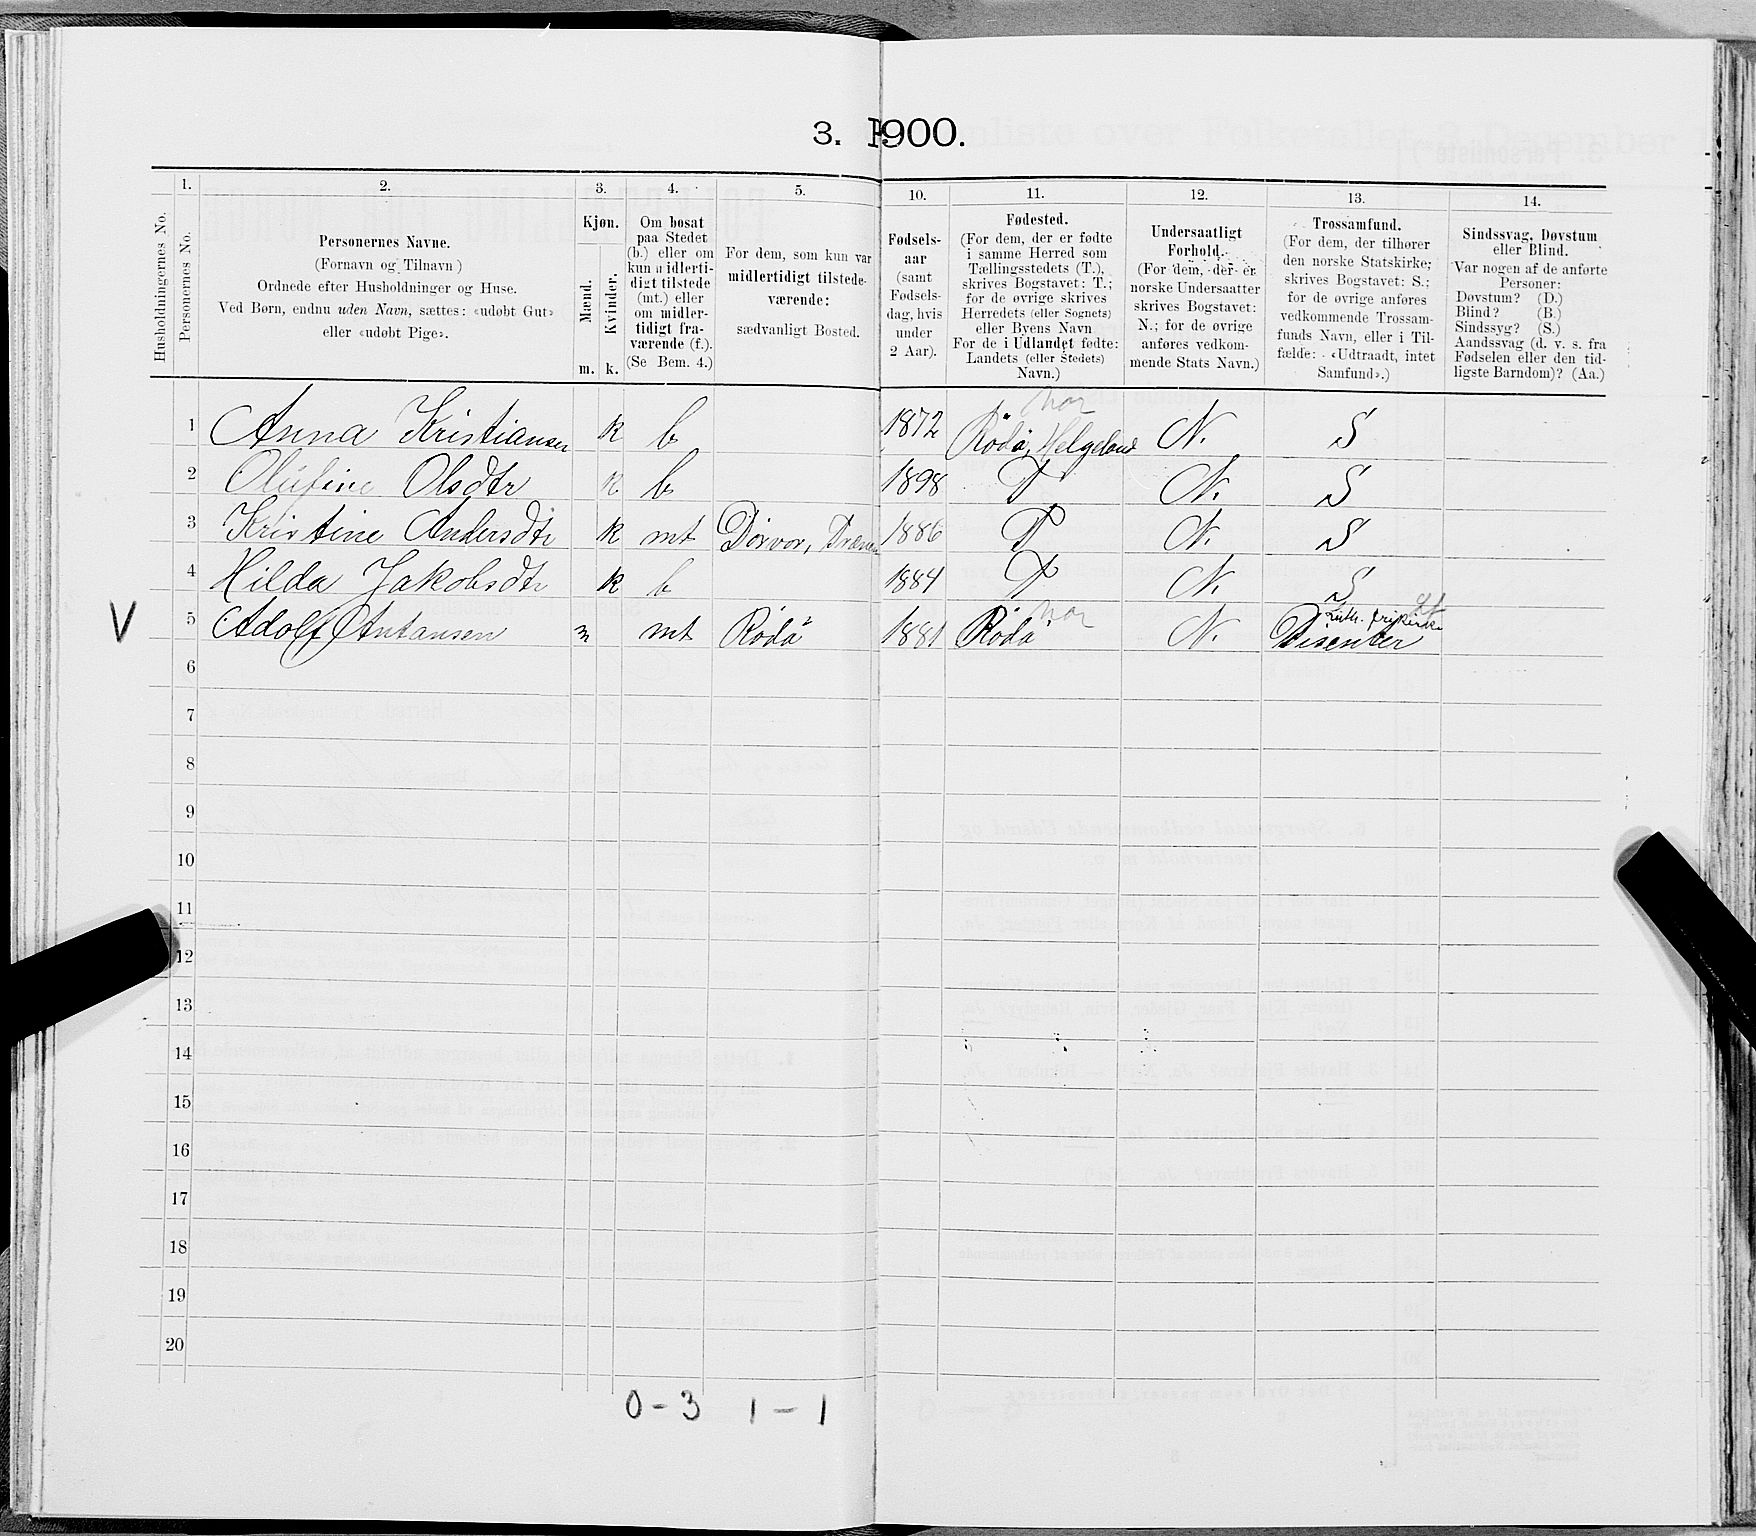 3. 1900.
1. 2. 3. 4. 5. 10. 11. 12. 13. 14.
Husholdningernes No.
Personernes No.
Personernes Navne.
(Fornavn og Tilnavn)
Ordnede efter Husholdninger og Huse.
Ved Børn, endnu uden Navn, sættes: «udøbt Gut»
eller «udøbt Pige».
Kjøn.
Mænd.
Kvinder.
m. k.
Om bosat
paa Stedet
(b.) eller om
kun midlerti-
digt tilstede
(mt.) eller
om midler-
tidigt fra-
værende (f.).
(Se Bem. 4.)
For dem, som kun var
midlertidigt tilstede-
værende:
sædvanligt Bosted.
Fødsels-
aar
(samt
Fødsels-
dag, hvis
under
2 Aar).
Fødested.
(For dem, der er fødte
i samme Herred som
Tællingsstedets (T.),
skrives Bogstavet: T.;
for de øvrige skrives
Herredets (eller Sognets)
eller Byens Navn
For de i Udlandet fødte:
Landets (eller Stedets)
Navn.)
Undersaatligt
Forhold.
(For dem, der er
norske Undersaatter
skrives Bogstavet:
N.; for de øvrige
anføres vedkom-
mende Stats Navn.)
Trossamfund.
(For dem, der tilhører
den norske Statskirke;
skrives Bogstavet: S.;
for de øvrige anføres
vedkommende Trossam-
funds Navn, eller i Til-
fælde: «Udtraadt, intet
Samfund».)
Sindssvag, Døvstum
eller Blind.
Var nogen af de anførte
Personer:
Døvstum? (D.)
Blind? (B.)
Sindssyg? (S.)
Aandssvag (d. v. s. fra
Fødselen eller den tid-
ligste Barndom)? (Aa.)
nor
1 Anna Kristiansen k b 1872 Rödö, Helgeland N. S
2 Olufine Olsdtr k b 1898 T N. S
3 Kristine Andersdtr k mt Dörvor, Træne 1886 T N. S
4 Hilda Jakobsdtr k b 1884 T N. S
nor Luth. frikirke
V 5 Adolf Antonsen m mt Rödö 1881 Rödö N. Disenter
6
7
8
9
10
11
12
13
14
15
16
17
18
19
20
0-3 1-1